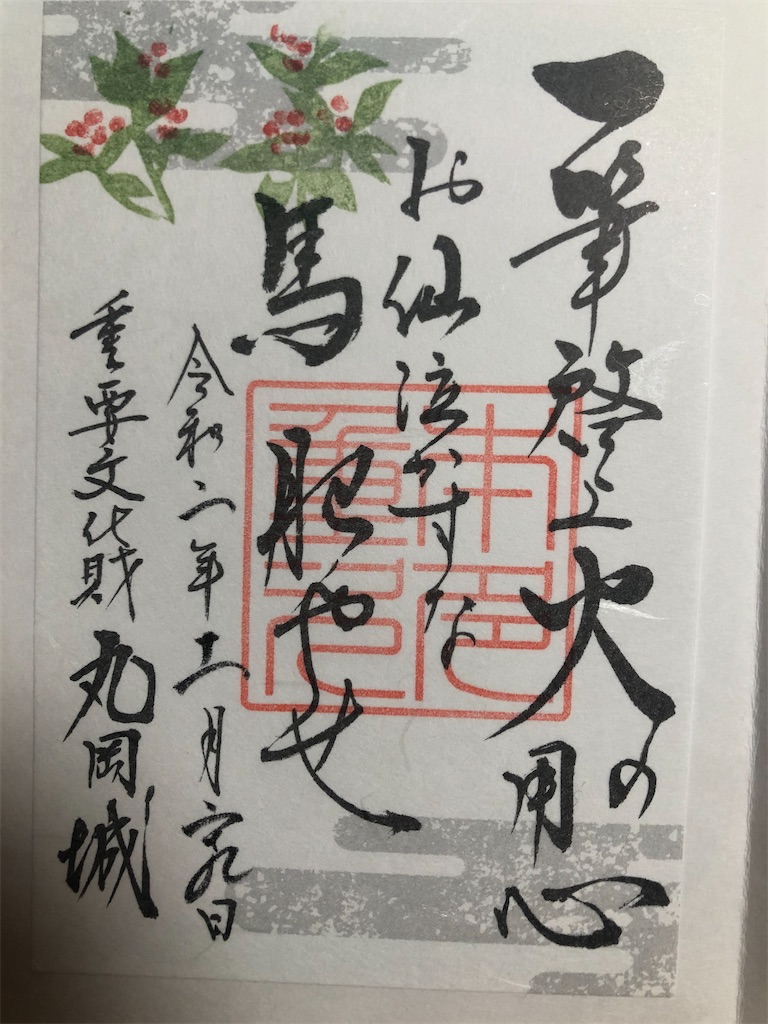 一筆啓上火の用心
お仙泣かすな
馬肥やせ
令和二年十一月九日
重要文化財丸岡城